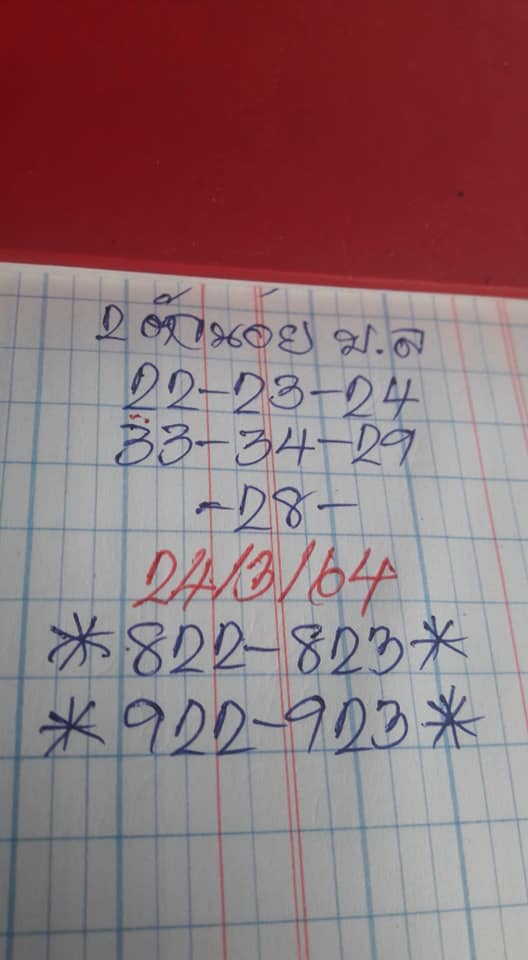 2 ตัวน้อย ม.ล
22-23-24
33-34-29
-28-
24/3/64
*822-823*
*922-923*